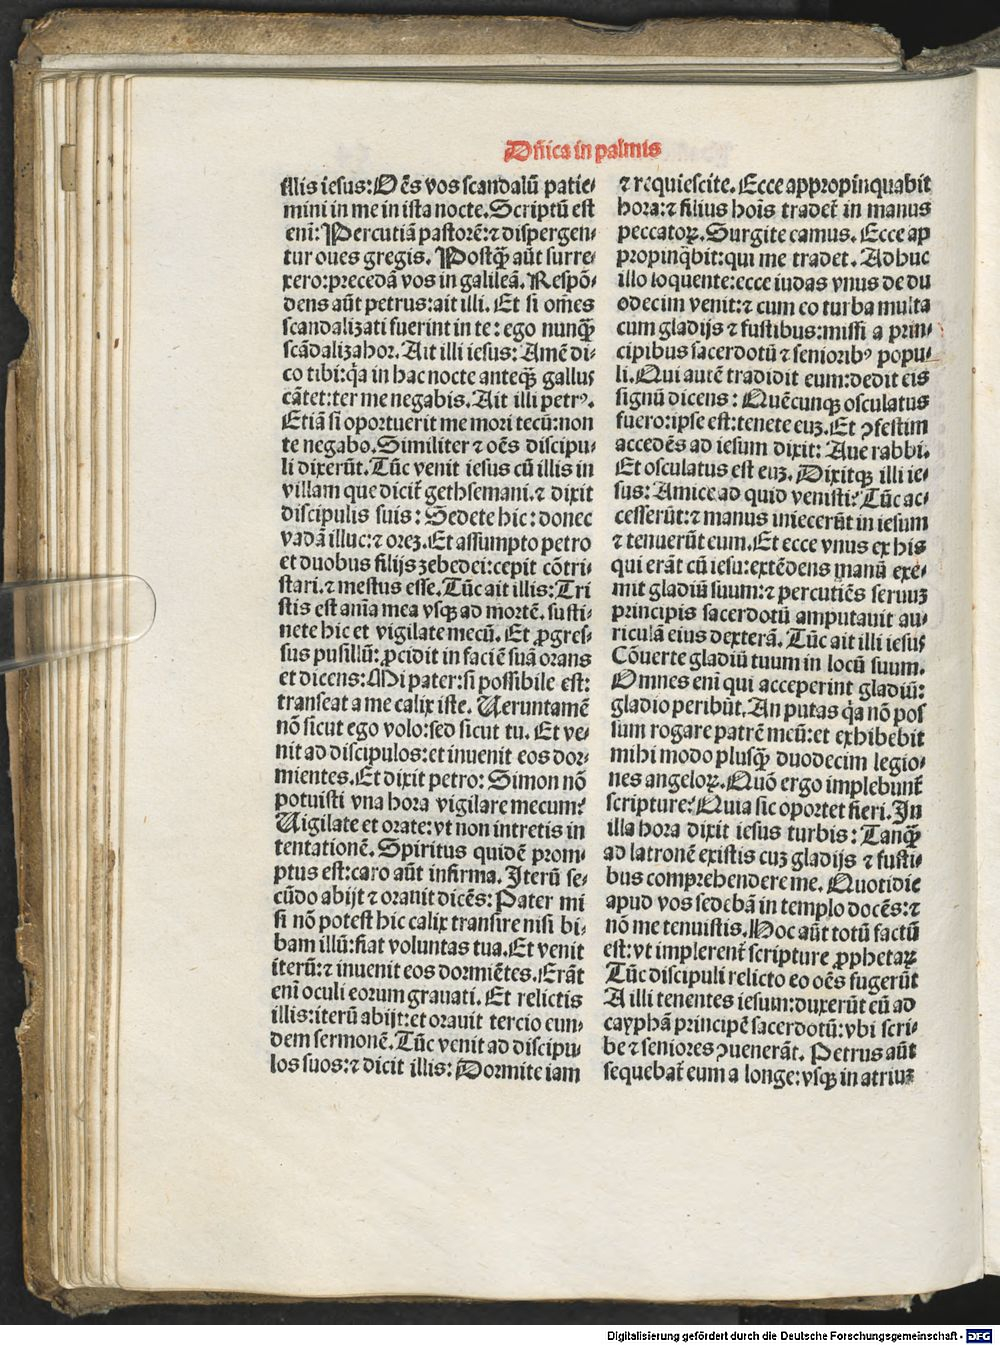 Dñica in palmis
illis iesus: Oẽs vos scandalũ patie⸗
mini in me in ista nocte. Scriptũ est
eni͂: Percutiã pastorẽ: ⁊ dispergen⸗
tur oues gregis. Postq̃ aũt surre⸗
xero: precedã vos in galileã. Respõ⸗
dens aũt petrus: ait illi. Et si om̃es
scandalizati fuerint in te: ego nunq̃
scãdalizabor. Ait illi iesus: Amẽ di⸗
co tibi: q̃a in hac nocte anteq̃ gallus
cãtet: ter me negabis. Ait illi petrꝰ.
Etiã si oportuerit me mori tecũ: non
te negabo. Similiter ⁊ oẽs discipu⸗
li dixerũt. Tũc venit iesus cũ illis in
villam que dicit᷑ gethsemani. ⁊ dixit
discipulis suis: Sedete hic: donec
vadã illuc: ⁊ oreꝫ. Et assumpto petro
et duobus filijs zebedei: cepit cõtri⸗
stari. ⁊ mestus esse. Tũc ait illis: Tri
stis est anĩa mea vsqꝫ ad mortẽ. susti⸗
nete hic et vigilate mecũ. Et ꝓgres⸗
sus pusillũ: ꝓcidit in faciẽ suã orans
et dicens: Mi pater: si possibile est:
transeat a me calix iste. Ueruntamẽ
nõ sicut ego volo: sed sicut tu. Et ve⸗
nit ad discipulos: et inuenit eos dor⸗
mientes. Et dixit petro: Simon nõ
potuisti vna hora vigilare mecum?
Uigilate et orate: vt non intretis in
tentationẽ. Spiritus quidẽ prom⸗
ptus est: caro aũt infirma. Iterũ se⸗
cũdo abijt ⁊ orauit dicẽs: Pater mi
si nõ potest hic calix transire nisi bi⸗
bam illũ: fiat voluntas tua. Et venit
iterũ: ⁊ inuenit eos dormiẽtes. Erãt
eni͂ oculi eorum grauati. Et relictis
illis: iterũ abijt: et orauit tercio eun⸗
dem sermonẽ. Tũc venit ad discipu⸗
los suos: ⁊ dicit illis: Dormite iam
⁊ requiescite. Ecce appropinquabit
hora: ⁊ filius hoĩs tradet᷑ in manus
peccatoꝝ. Surgite camus. Ecce ap
propinq̃bit: qui me tradet. Adhuc
illo loquente: ecce iudas vnus de du
odecim venit: ⁊ cum eo turba multa
cum gladijs ⁊ fustibus: missi a prin⸗
cipibus sacerdotũ ⁊ senioribꝰ popu⸗
li. Qui autẽ tradidit eum: dedit eis
signũ dicens: Quẽcunqꝫ osculatus
fuero: ipse est: tenete euꝫ. Et ꝯfestim
accedẽs ad iesum dixit: Aue rabbi.
Et osculatus est euꝫ. Dixitqꝫ illi ie⸗
sus: Amice ad quid venisti? Tũc ac⸗
cesserũt: ⁊ manus iniecerũt in iesum
⁊ tenuerũt eum. Et ecce vnus ex his
qui erãt cũ iesu: extẽdens manũ exe⸗
mit gladiũ suum: ⁊ percutiẽs seruuꝫ
principis sacerdotũ amputauit au⸗
riculã eius dexterã. Tũc ait illi iesus
Cõuerte gladiũ tuum in locũ suum.
Omnes eni͂ qui acceperint gladiũ:
gladio peribũt. An putas q̃a nõ pos
sum rogare patrẽ meũ: et exhibebit
mihi modo plusq̃ duodecim legio⸗
nes angeloꝝ. Quõ ergo implebunt᷑
scripture? Quia sic oportet fieri. In
illa hora dixit iesus turbis: Tanq̃
ad latronẽ existis cuꝫ gladijs ⁊ fusti⸗
bus comprehendere me. Quotidie
apud vos sedebã in templo docẽs: ⁊
nõ me tenuistis. Hoc aũt totũ factũ
est: vt implerent᷑ scripture ꝓphetaꝝ
Tũc discipuli relicto eo oẽs fugerũt
A illi tenentes iesum: duxerũt cũ ad
cayphã principẽ sacerdotũ: vbi scri⸗
be ⁊ seniores ꝯuenerãt. Petrus aũt
sequebat᷑ eum a longe: vsqꝫ in atriuꝫ
Digitalisierung gefördert durch die Deutsche Forschungsgemeinschaft - DFG